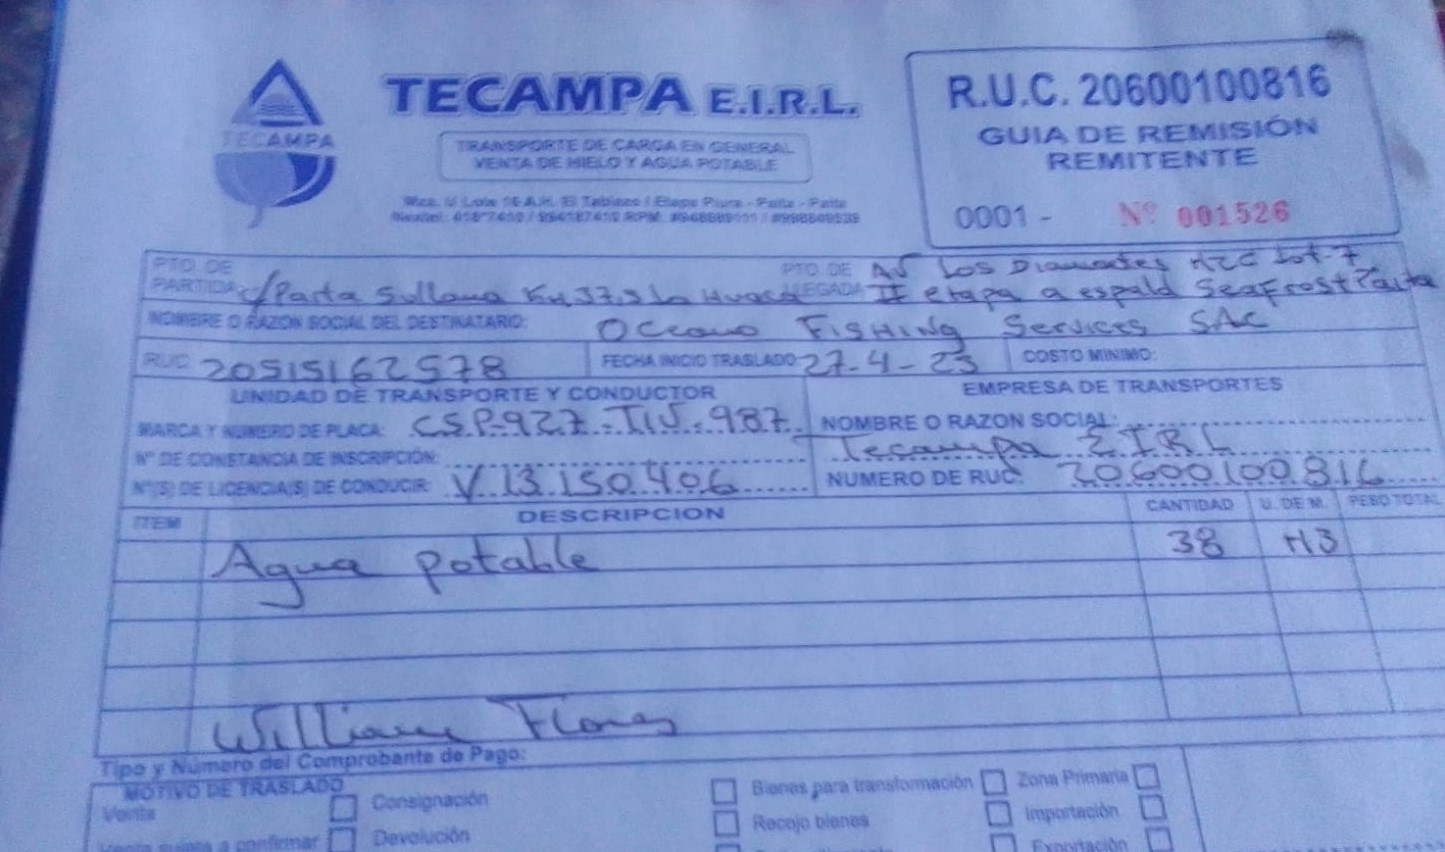 TECAMPA E.I.R.L.
TECAMPA
TRANSPORTE DE CARGA EN GENERAL
VENTA DE HIELO Y AGUA POTABLE
R.U.C. 20600100816
GUIA DE REMISIÓN
REMITENTE
0001 - Nº 001526
PTO DE PARTIDA: c/Paita Sullana La Huaca
PTO DE LLEGADA AV Los Diamantes MZC Lot-7
II etapa a espald Seafrost Paita
NOMBRE O RAZON SOCIAL DEL DESTINATARIO: Oceano FISHING Services SAC
RUC 20515162578 FECHA INICIO TRASLADO: 27-4-23 COSTO MINIMO:
UNIDAD DE TRANSPORTE Y CONDUCTOR EMPRESA DE TRANSPORTES
MARCA Y NUMERO DE PLACA: CSP-927- -987 NOMBRE O RAZON SOCIAL:
Nº DE CONSTANCIA DE INSCRIPCIÓN: Tecampa E.I.R.L
Nº(S) DE LICENCIA(S) DE CONDUCIR: V 13150406 NUMERO DE RUC: 20600100816
ITEM DESCRIPCION CANTIDAD U. DE M. PESO TOTAL
Agua potable 38 M3
William Flores
Tipo y Número del Comprobante de Pago:
MOTIVO DE TRASLADO
Venta Consignación Bienes para transformación Zona Primaria
Venta sujeta a confirmar Devolución Recojo bienes Importación
Exportación